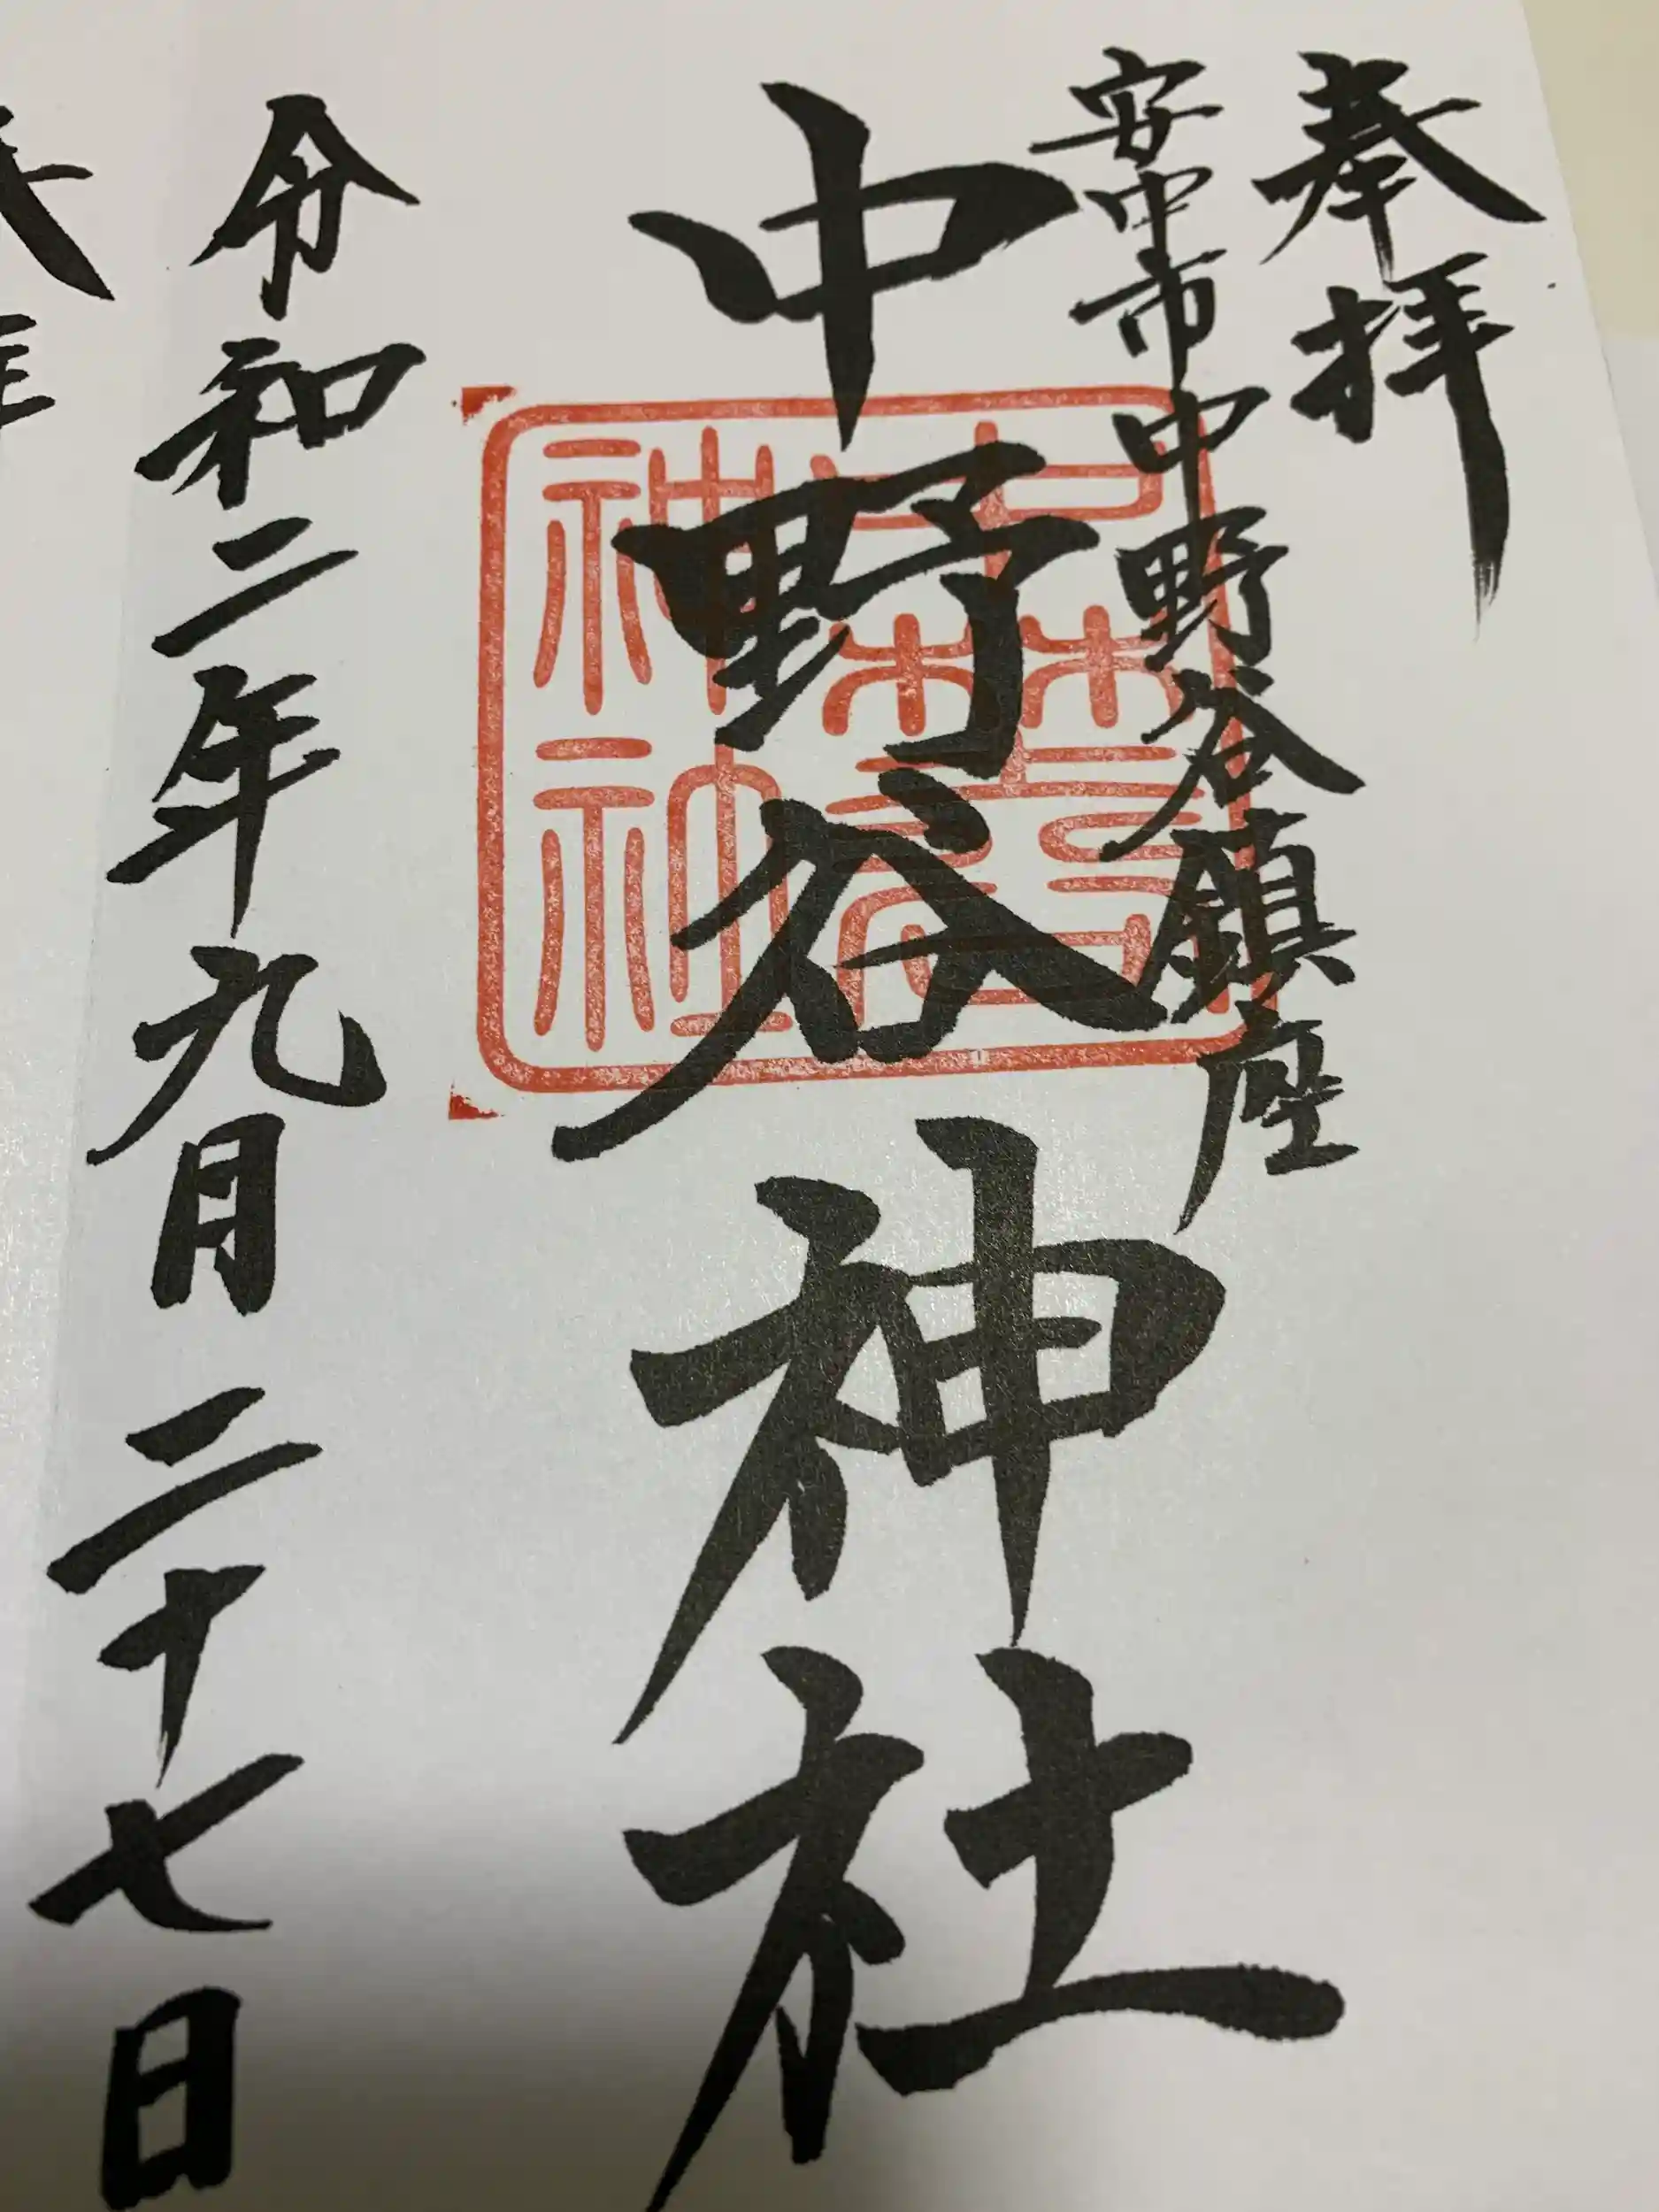 奉拝
安中市中野谷鎮座
中野谷神社
神社
令和二年九月二十七日